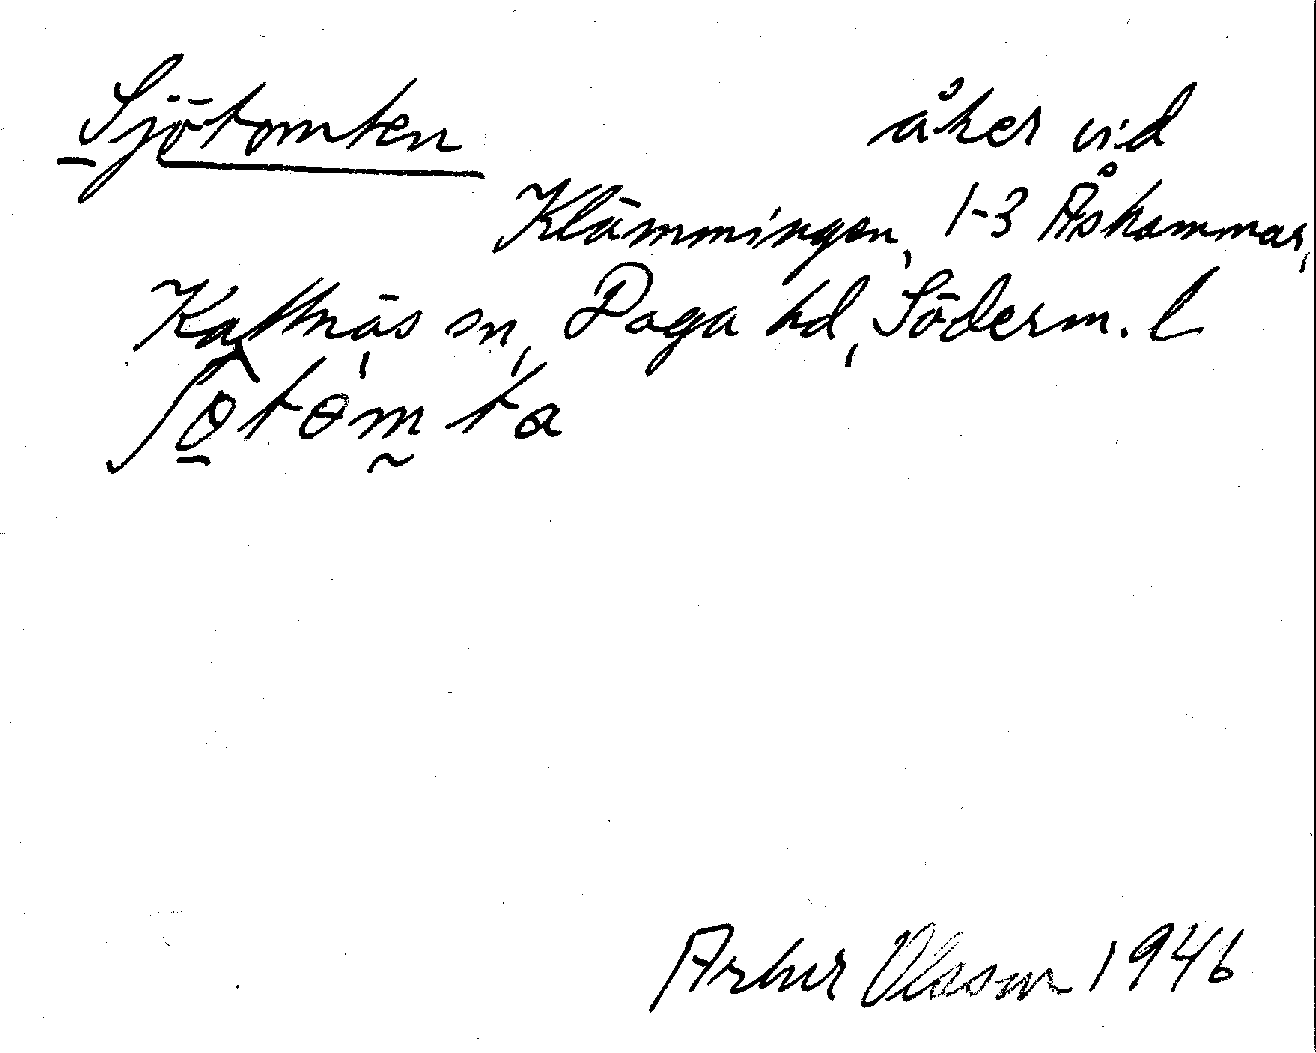 Sjötomten åker vid
Klämmingen, 1-3 Åskammar,
Kattnäs sn, Daga hd, Söderm. l
ʃɵtɵmta
Artur Olsson 1946